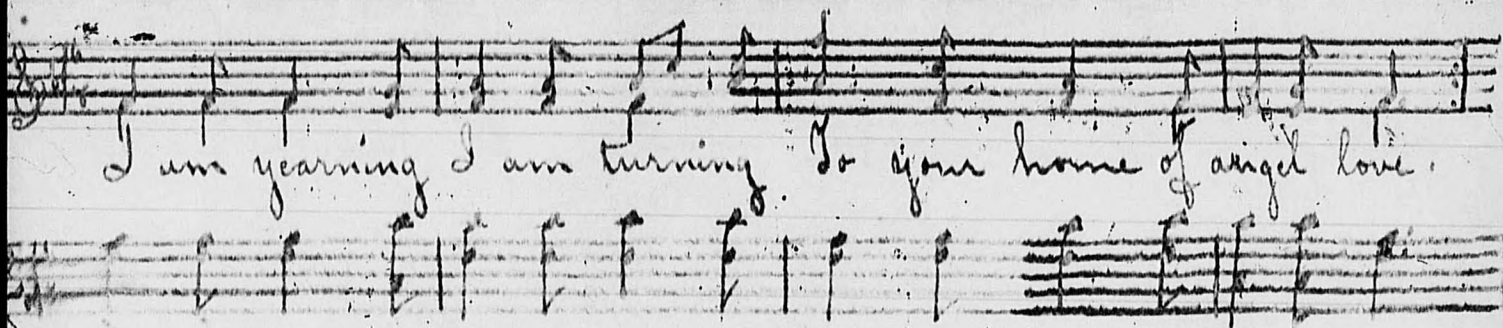 I am yearning I am turning To your home of angel love.